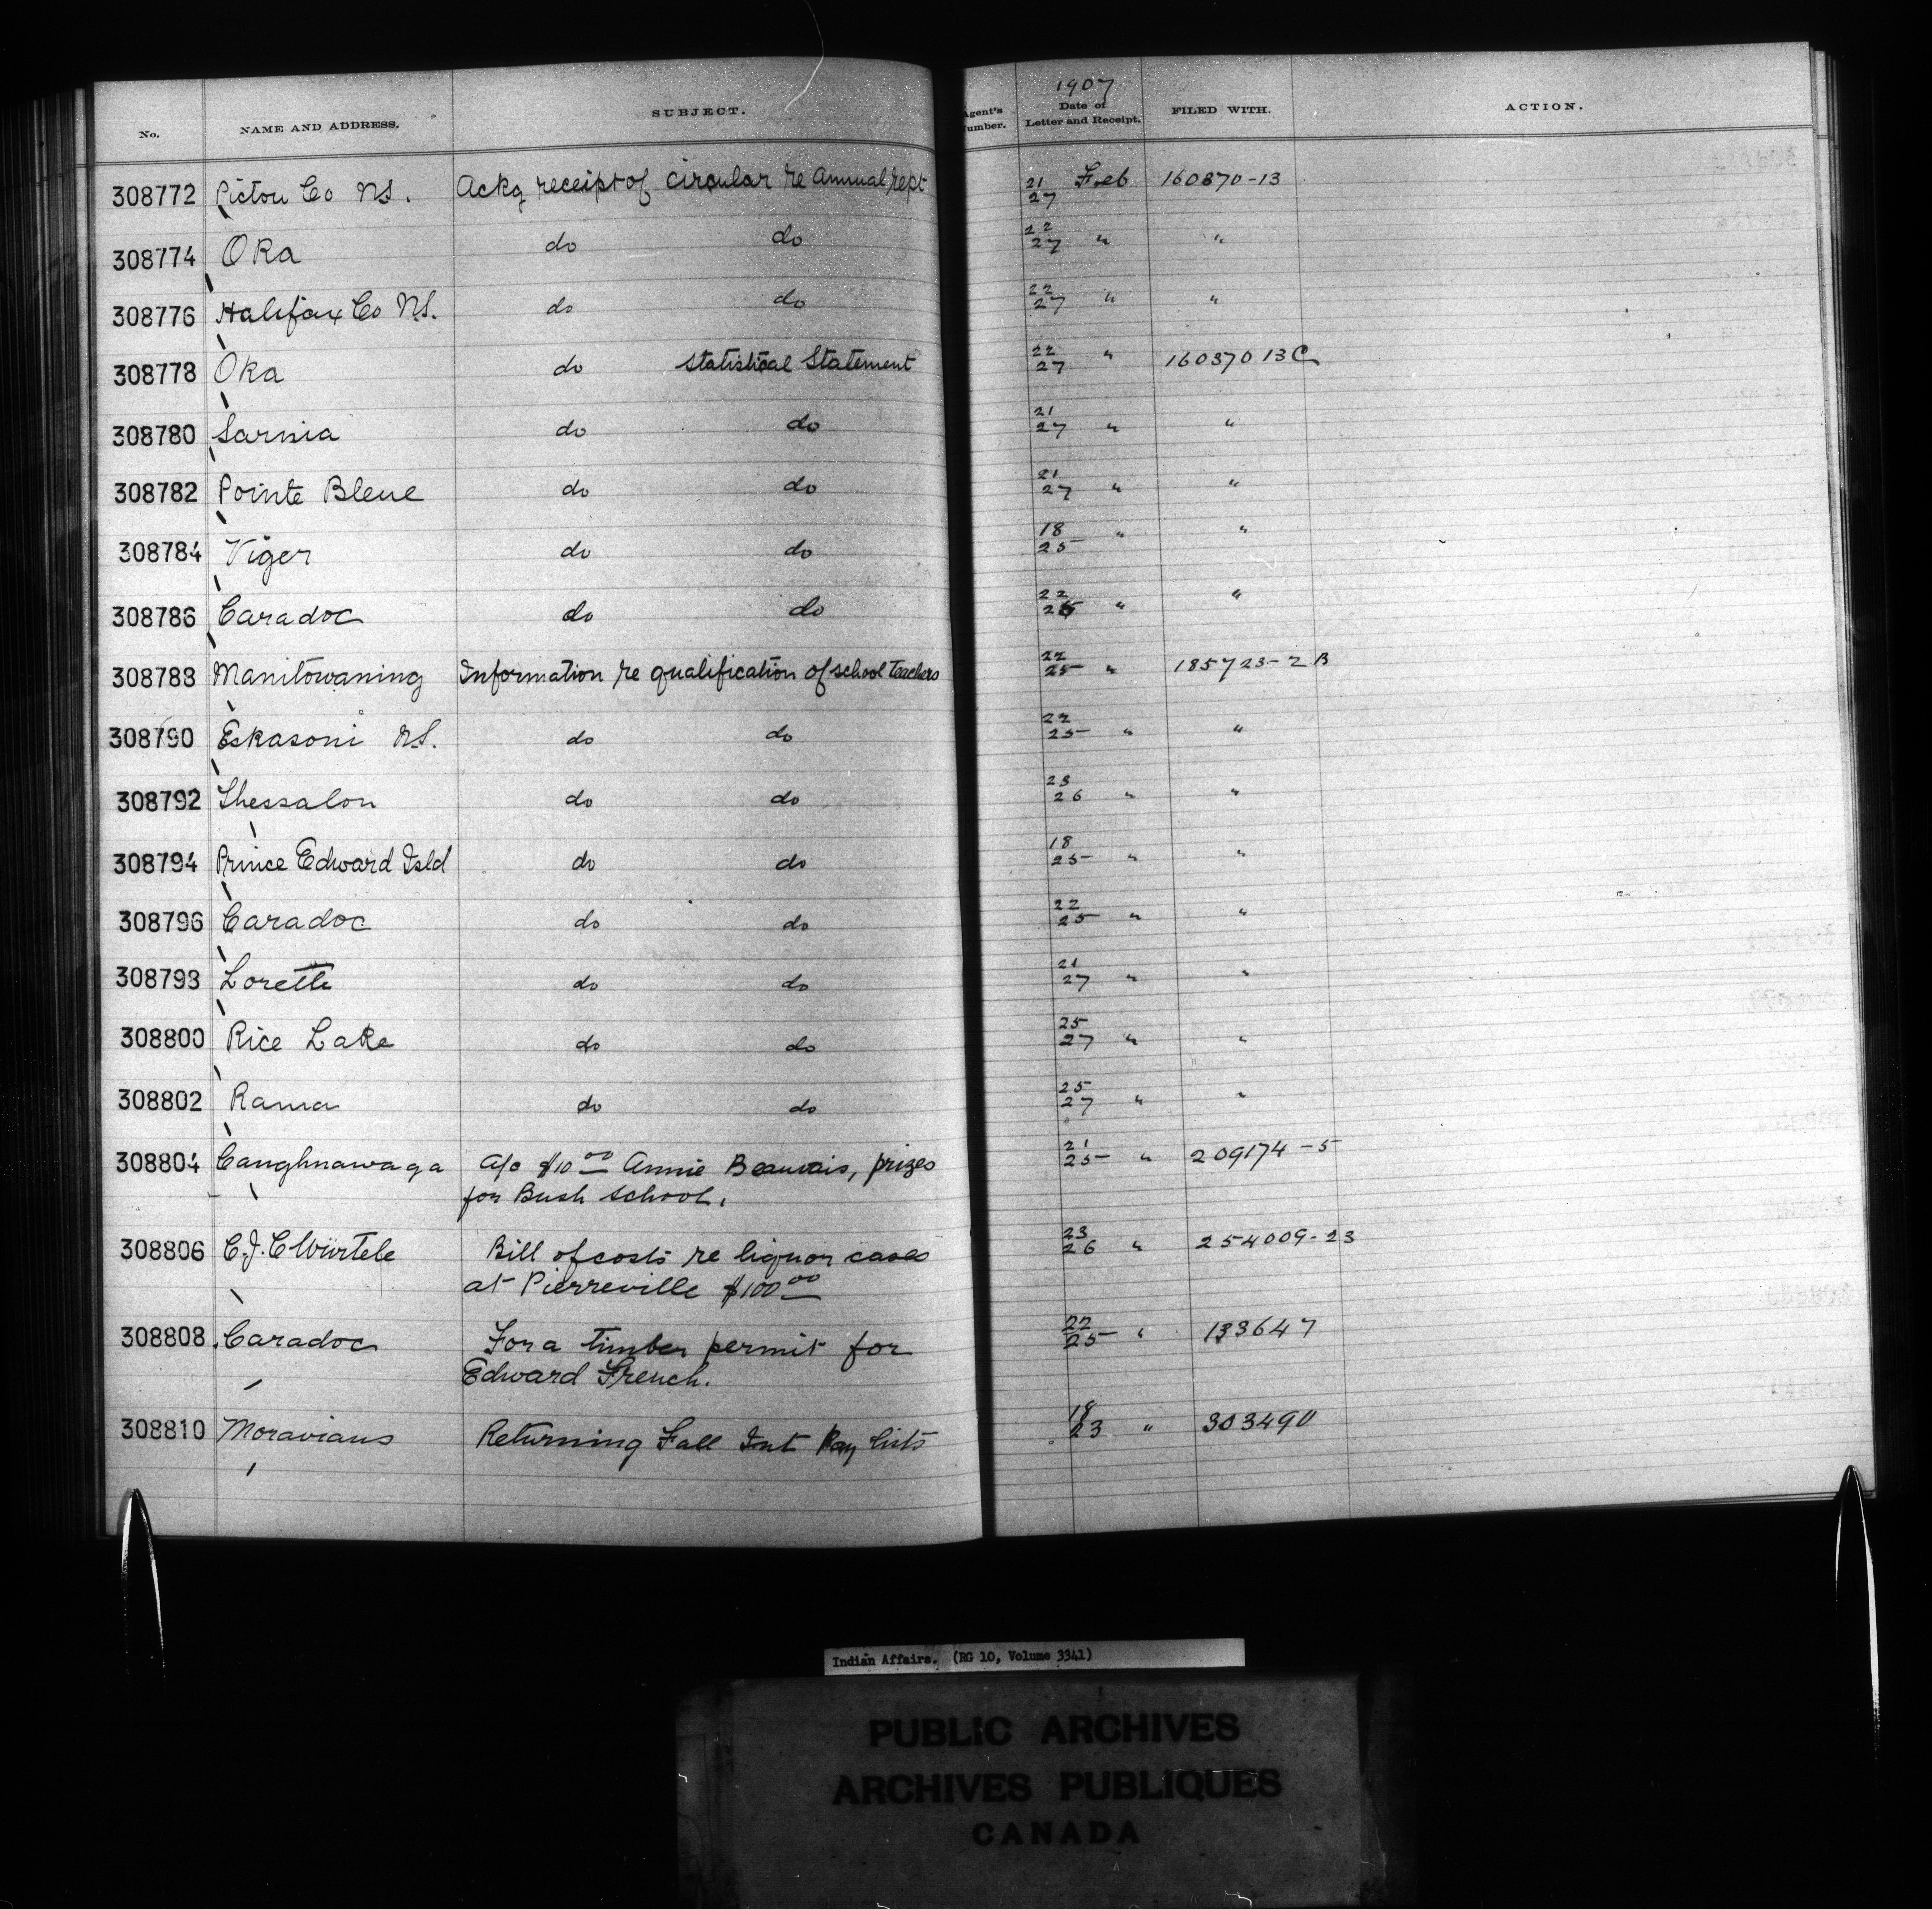 1907
No. NAME AND ADDRESS. SUBJECT. Agent's Number. Date of Letter and Receipt. FILED WITH. ACTION.
308772 Pictou Co NS. Ackg receipt of circular re Annual rept 21/27 Feb 160370-13
308774 Oka do do 22/27 " "
308776 Halifax Co N.S. do do 22/27 " "
308778 Oka do Statistical Statement 22/27 " 160370 13C
308780 Sarnia do do 21/27 " "
308782 Pointe Bleue do do 21/27 " "
308784 Viger do do 18/25 " "
308786 Caradoc do do 22/25 " "
308788 Manitowaning Information re qualification of school teachers 22/25 " 185723-2B
308790 Eskasoni N.S. do do 22/25 " "
308792 Thessalon do do 23/26 " "
308794 Prince Edward Isld do do 18/25 " "
308796 Caradoc do do 22/25 " "
308798 Lorette do do 21/27 " "
308800 Rice Lake do do 25/27 " "
308802 Rama do do 25/27 " "
308804 Caughnawaga a/c $10 00 Annie Beauvais, prizes 21/25 " 209174-5
for Bush School.
308806 C.J.C Würtele Bill of costs re liquor cases 23/26 " 254009-23
at Pierreville $100 00
308808 Caradoc For a timber permit for 22/25 " 133647
Edward French.
308810 Moravians Returning Fall Int Pay lists 18/23 " 303490
Indian Affairs. (RG 10, Volume 3341)
PUBLIC ARCHIVES
ARCHIVES PUBLIQUES
CANADA